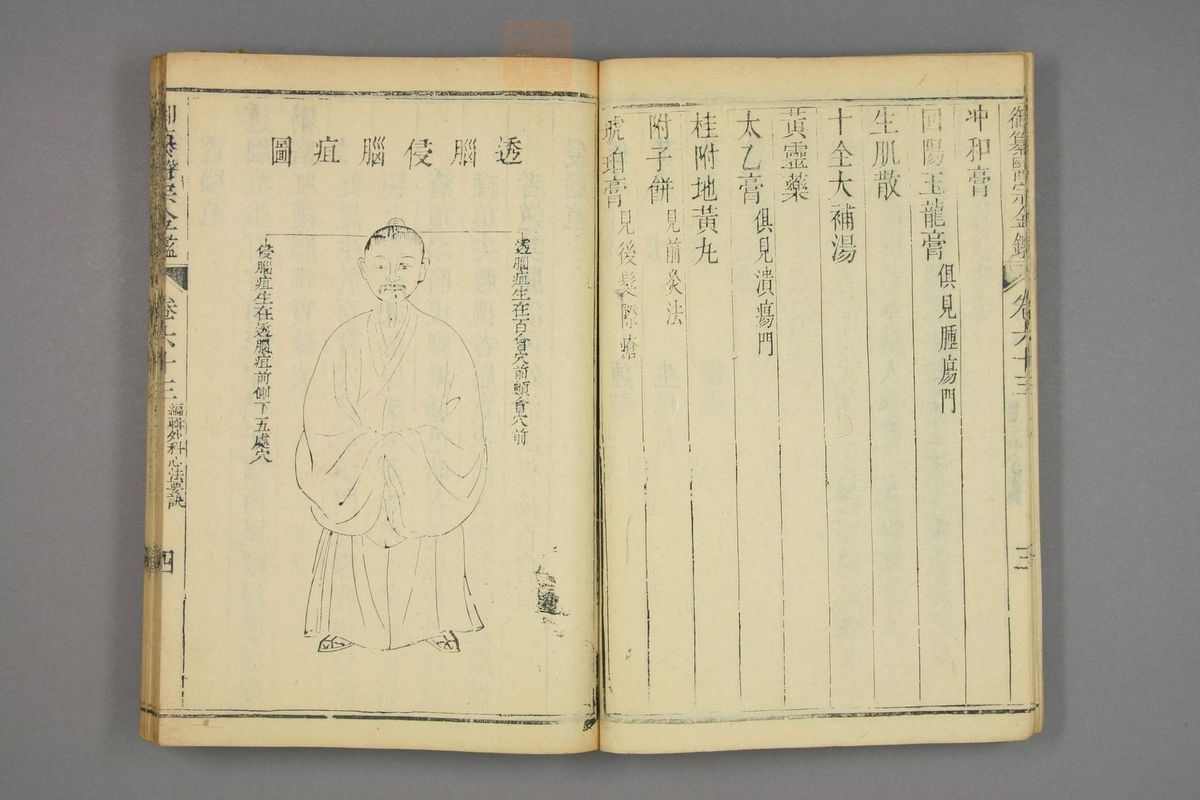 御纂醫宗金鑑
卷六十三
三
冲和膏
回陽玉龍膏 俱見腫瘍門
生肌散
十全大補湯
黃靈藥
太乙膏 俱見潰瘍門
桂附地黃丸
附子餅 見前灸法
琥珀膏 見後髮際瘡
透腦侵腦疽圖
透腦疽生在百會穴前顖會穴前
侵腦疽生在透腦疽前側下五處穴
御纂醫宗金鑑
卷六十三
編輯外科心法要訣
四